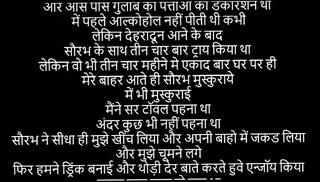 और आस पास गुलाब का पत्तीओ का डेकोरेशन था
में पहले आल्कोहोल नहीं पीती थी कभी
लेकिन देहरादून आने के बाद
सौरभ के साथ तीन चार बार ट्राय किया था
लेकिन वो भी तीन चार महीने मे एकाद बार घर पर ही
मेरे बाहर आते ही सौरभ मुस्कुराये
में भी मुस्कुराई
मैंने सर टॉवल पहना था
अंदर कुछ भी नहीं पहना था
सौरभ ने सीधा ही मुझे खींच लिया और अपनी बाहो में जकड लिया
और मुझे चूमने लगे
फिर हमने ड्रिंक बनाई और थोड़ी देर बाते करते हुवे एन्जॉय किया